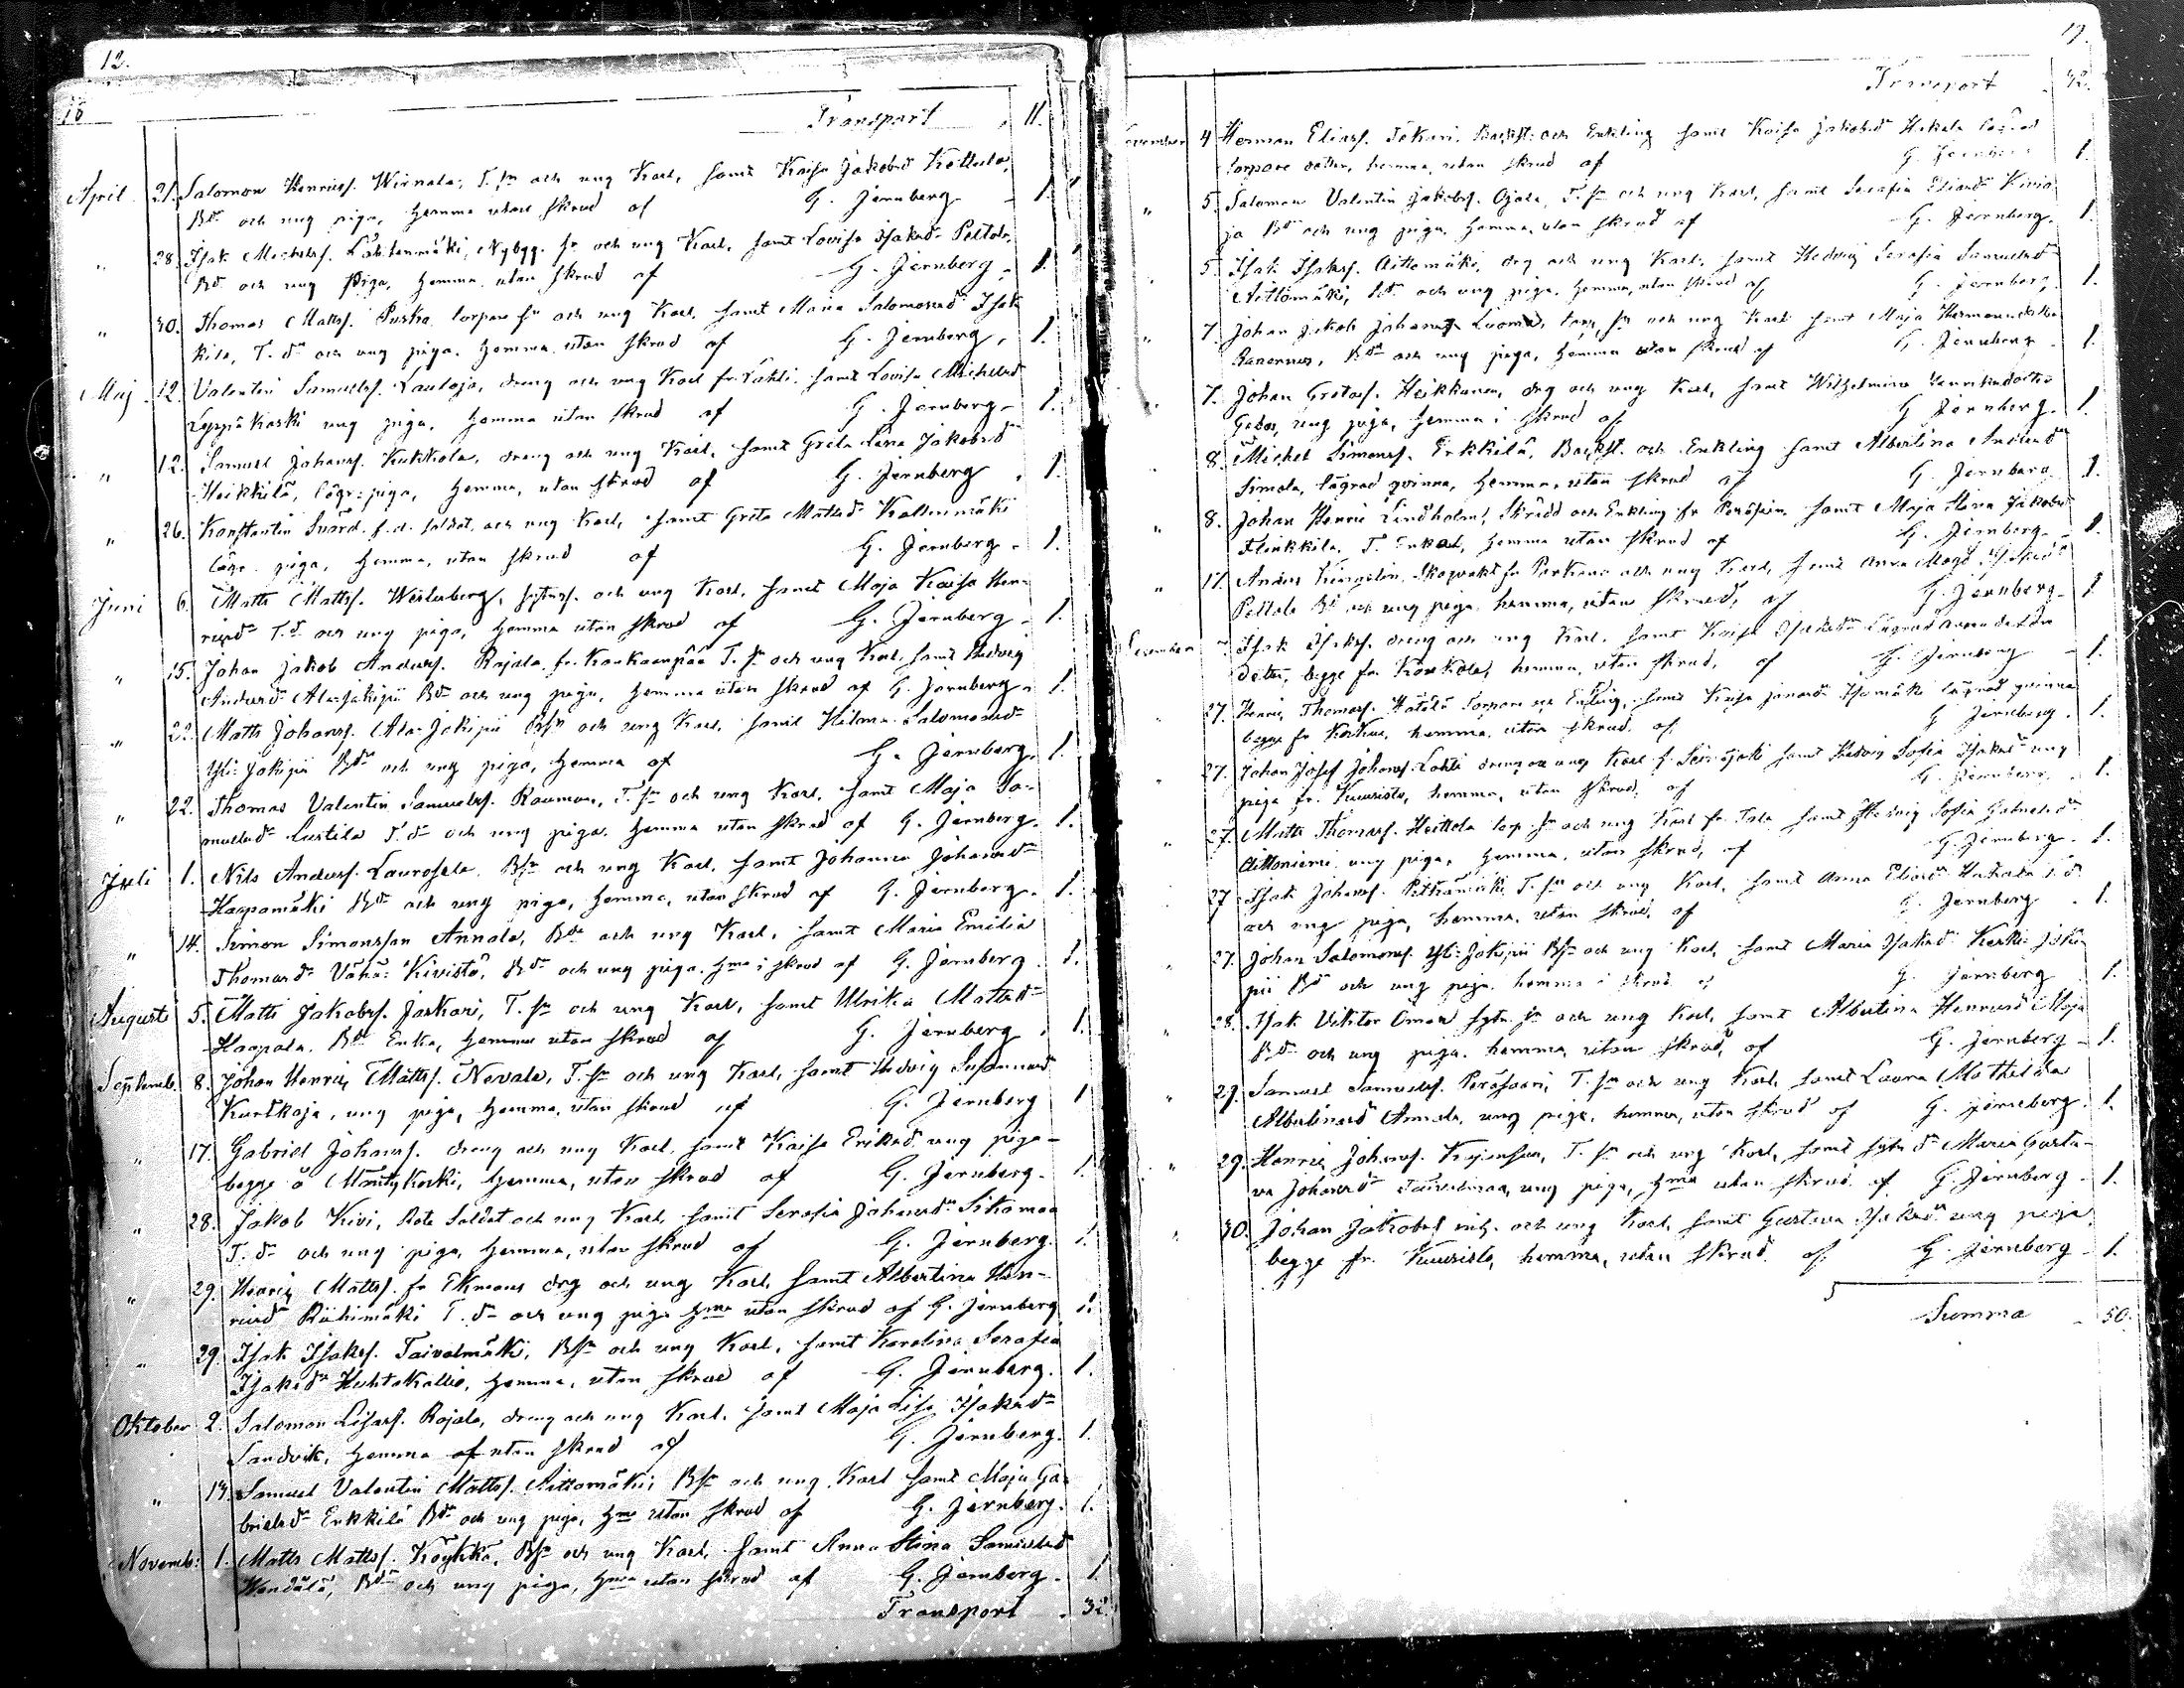 12.
18
Transport 11.
April 21. Salomon Henrikss. Wirnala, T. sn och ung Karl, samt Kaisa Jakobsd Kottula,
Bdr och ung piga, hemma utan skrud af G. Jernberg 1.
" 28. Isak Michelss. Lähtenmäki, Nybygg. sn och ung Karl, samt Lovisa Isaksdr Peltola,
Bdr och ung piga, hemma utan skrud af G. Jernberg 1.
" 30. Thomas Mattss. Puska torpare sn och ung Karl, samt Maria Salomonsdr Isak
kila, T. dr och ung piga. hemma utan skrud af G. Jernberg, 1.
Maj 12. Valentin Samuelss. Lauloja, dreng och ung Karl fr. Lahti samt Lovisa Michelsd
Leppäkoski ung piga, hemma utan skrud af G. Jernberg 1.
" 12. Samuel Johanss. Kukkola, dreng och ung Karl, samt Greta Lena Jakobsdr
Heikkilä, lägr: piga, hemma, utan skrud af G. Jernberg 1.
" 26. Konstantin Svärd f.d. soldat och ung Karl, samt Greta Mattsdr Kallenmäki
lägr. piga, hemma, utan skrud af G. Jernberg 1.
Juni 6. Matts Mattss. Westerberg, och ung Karl, samt Maja Kaisa Hen-
riksdr T. d. och ung piga, hemma utan skrud af G. Jernberg 1.
" 15. Johan Jakob Anderss. Rajala fr. Kankaanpää T. sn och ung Karl, samt Hedvig
Andersdr Ala-Jokipii Bdr och ung piga, hemma utan skrud af G. Jernberg 1.
" 22. Matts Johanss. Ala-Jokipii Bsn och ung Karl, samt Hilma Salomonsdr
Yli-Jokipii Bdr och ung piga, hemma af G. Jernberg. 1.
" 22. Thomas Valentin Samuelss. Rauman, T. sn och ung Karl, samt Maja Sa-
muelsdr Lustila T. dr och ung piga. hemma utan skrud af G. Jernberg. 1.
Juli 1. Nils Anderss. Laurosela, Bsn och ung Karl, samt Johanna Johansdr
Haapamäki Bdr och ung piga, hemma, utan skrud af G. Jernberg. 1.
" 14. Simon Simonsson Annala, Bsn och ung Karl, samt Maria Emilia
Thomasdr Vähä-Kivistö, Bdr och ung piga. hma i skrud af G. Jernberg. 1.
Augusti 5. Matts Jakobss. Jaskari, T. sn och ung Karl, samt Ulrika Mattsdr
Haapala. Bdr Enka, hemma utan skrud af G. Jernberg. 1.
Septemb. 8. Johan Henric Mattss. Nevala, T. sn och ung Karl, samt Hedvig Susannasd
Kurikaja, ung piga, hemma, utan skrud af G. Jernberg 1
" 17. Gabriel Johanss. dreng och ung Karl, samt Kaisa Eriksdr ung piga
begge å Mäntykoski, hemma, utan skrud af G. Jernberg. 1.
" 28. Jakob Kivi, Rote Soldat och ung Karl, samt Serafia Johansdr Sikamaa
T. dr och ung piga, hemma, utan skrud af G. Jernberg. 1.
" 29. Henric Mattss. fr Ekmans drg och ung Karl, samt Albertina Hen-
riksdr Riihimäki T. dr och ung piga hma utan skrud af G. Jernberg 1.
" 29. Isak Isakss. Taivalmäki, Bsn och ung Karl, samt Karolina Serafia
Isaksdr Huhtakallio, hemma, utan skrud af G. Jernberg. 1.
Oktober 2. Salomon Lisass. Rajala, dreng och ung Karl, samt Maja Lisa Isaksdr
Sandvik, hemma af utan skrud af G. Jernberg. 1.
" 14. Samuel Valentin Mattss. Aittomäki, Bsn och ung Karl samt Maja Ga-
brielsdr Erkkilä Bdr och ung piga, hma utan skrud af G. Jernberg. 1.
Novemb: 1. Matts Mattss. Köykkä, Bsn och ung Karl, samt Anna Stina Samuelsd
Kandälä, Bdr och ung piga, hma utan skrud af G. Jernberg. 1.
Transport 32.
19.
Transport 32.
November 4 Herman Eliass. Tokari, Backst: och Enkling samt Kaisa Jakobsdr Hakala lägrad
torpare dotter, hemma, utan skrud af G. Jernberg 1.
" 5. Salomon Valentin Jakobss. Ojala, T. sn och ung Karl, samt Serafia Eliasdr Kivio
ja Bdr och ung piga, hemma, utan skrud af G. Jernberg. 1.
5. Isak Isakss. Aittomäki, drg och ung Karl, samt Hedvig Serafia Samuelsdr
Aittomäki, Bdr och ung piga, hemma, utan skrud af G. Jernberg. 1.
" 7. Johan Jakob Johanss. Luoma, torp. sn och ung Karl samt Maja Hermansdotter
Bdr och ung piga, hemma utan skrud af G. Jernberg 1.
7. Johan Gustafs. Heikkanen, drg och ung Karl, samt Wilhelmina Henriksdotter
ung piga, hemma i skrud af G. Jernberg. 1.
8. Michel Simonss. Erkkilä, Backst. och Enkling samt Albertina Andersdr
Simola, lägrad qvinna, hemma, utan skrud af G. Jernberg. 1.
" 8. Johan Henric Lindholm, Skrädd och Enkling fr Peräseinä. samt Maja Lena Jakobsd
Flinkkila, T. Enka, hemma utan skrud af G. Jernberg 1.
" 17. Anders Skogvakt fr Parkano och ung Karl, samt Anna Magd. Isaksdr
Peltola Bdr och ung piga hemma, utan skrud, af G. Jernberg 1.
December Isak Isakss. dreng och ung Karl, samt Kaisa Isaksdr
begge fr. Koskela, hemma, utan skrud, af G. Jernberg 1.
27. Henric Thomass. Hätälä Torpare och Enkling, samt Kaisa Jonasdr Isomäki lägrad qvinna
begge fr hemma, utan skrud, af G Jernberg. 1.
27. Johan Josef Johanss. Lahti dreng och ung Karl fr Seinäjoki samt Hedvig Sofia Isaksdr ung
piga fr. Kuuristo, hemma, utan skrud, af G. Jernberg. 1.
27. Matts Thomass. Hertola torp. sn och ung Karl fr samt Hedvig Sofia Gabrielsdr
Aittoniemi ung piga, hemma, utan skrud, af G. Jernberg. 1.
27 Isak Johanss. Pitkämäki, T. sn och ung Karl, samt Anna Eliasdr Hakala T. d
och ung piga, hemma, utan skrud, af G. Jernberg. 1.
27. Johan Salomonss. Yli-Jokipii Bsn och ung Karl, samt Maria Isaksdr Keski-Joki-
pii Bdr och ung piga. hemma i skrud af G. Jernberg 1.
28. Isak Viktor Öman sn och ung Karl, samt Albertina Henriksd Maja
Bdr och ung piga. hemma, utan skrud, af G. Jernberg 1.
" 29. Samuel Samuelss. Peräsaari, T. sn och ung Karl, samt Laura Mathilda
Albertinasdr Annala, ung piga, hemma, utan skrud af G. Jernberg. 1.
" 29. Henric Johanss. T. sn och ung Karl, samt dr Maria Gusta-
va Johansdr ung piga, hma utan skrud, af G. Jernberg 1.
" 30. Johan Jakobss. och ung Karl, samt Gustava Isaksdr ung piga,
begge fr. Kuuristo, hemma, utan skrud, af G. Jernberg 1.
Summa 50.